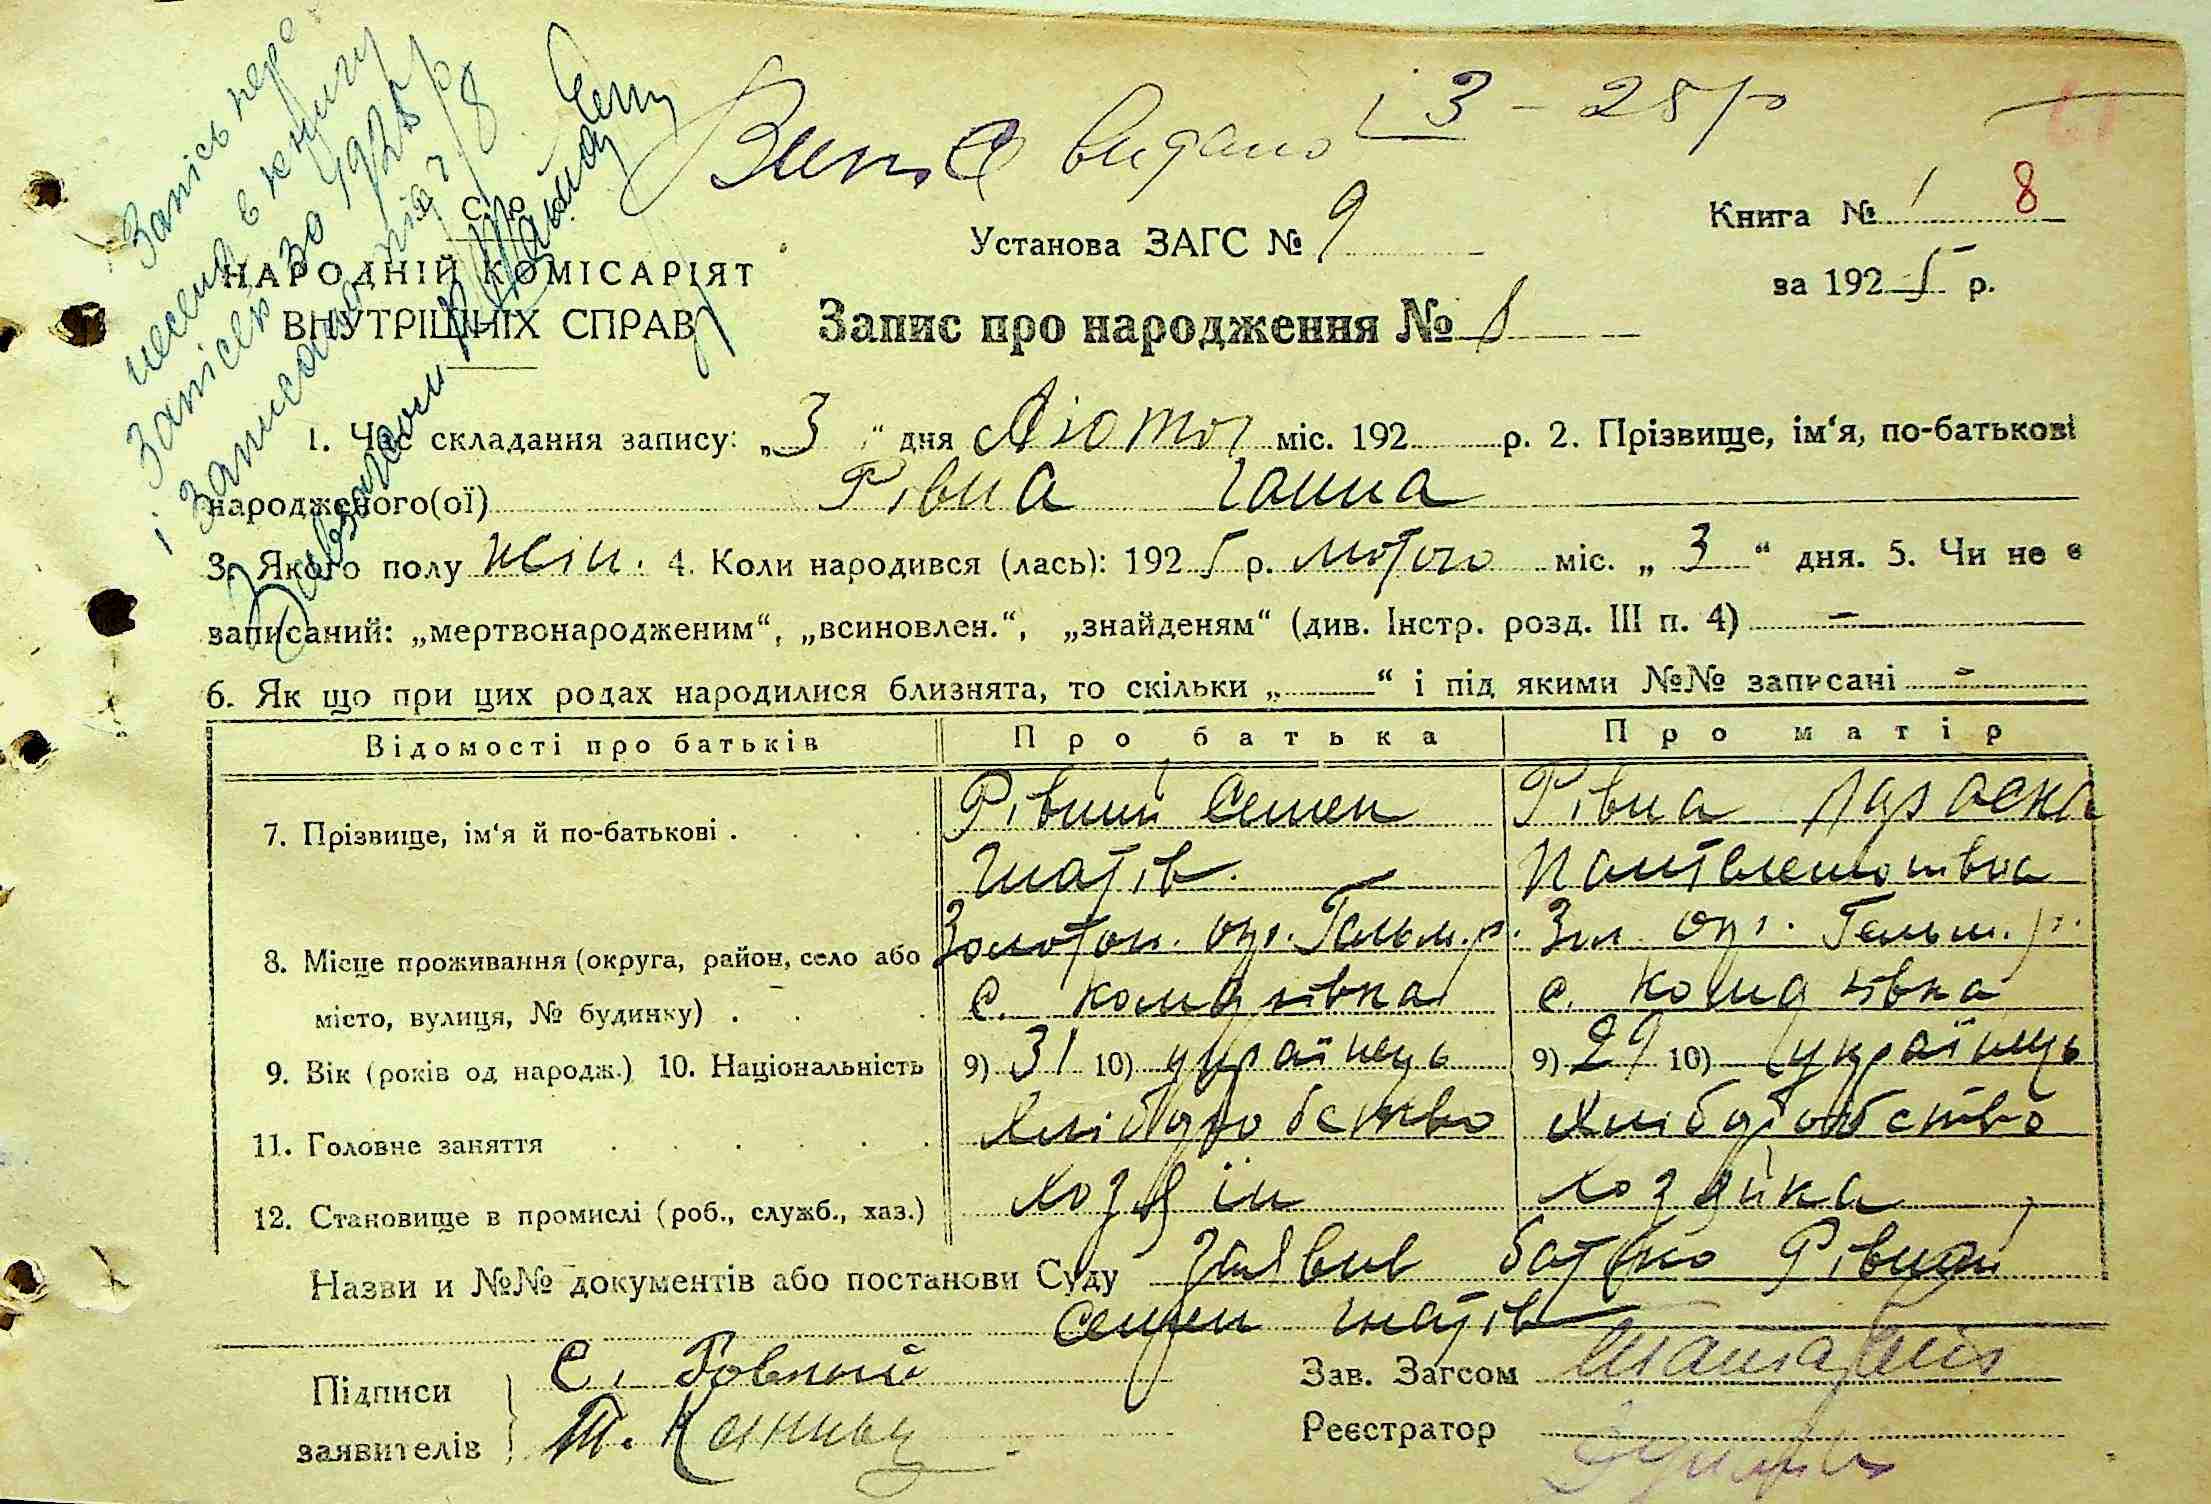 Запісь пере
несена в книгу
Записей за 1925 р
і записана під № 8
Завзагсом
Випис видано 3 - 25 р
У.С.Р.Р.
НАРОДНІЙ КОМІСАРІЯТ
ВНУТРІШНІХ СПРАВ
Установа ЗАГС № 9
Книга № 1 8
за 1925 р.
Запис про народження № 8
1. Час складання запису: „3“ дня Лютог міс. 192 р. 2. Прізвище, ім‘я, по-батькові
народженого(ої) Рівна Ганна
3. Якого полу жін. 4. Коли народився (лась): 1925 р. лютого міс. „3“ дня. 5. Чи не є
записаний: „мертвонародженим“, „всиновлен.“, „знайденям“ (див. Інстр. розд. III п. 4) –
6. Як що при цих родах народилися близнята, то скільки „—“ і під якими №№ записані –
Відомості про батьків Про батька Про матір
7. Прізвище, ім‘я й по-батькові . Рівний Семен Рівна Параска
Гнатів. Пантелемонівна
8. Місце проживання (округа, район, село або Золотон. окр. Гельм. р. Зол. окр. Гельм. р.
місто, вулиця, № будинку) . с. Комдзівка с. Комдзівка
9. Вік (років од народж.) 10. Національність 9) 31 10) українець 9) 29 10) українць
11. Головне заняття Хлібуробство Хліборобство
12. Становище в промислі (роб., служб., хаз.) хозяїн хозяйка
Назви и №№ документів або постанови Суду Заявив батько Рівний
Семен Гнатів
Підписи
заявителів
С. Ровный
Т.
Зав. Загсом
Реєстратор